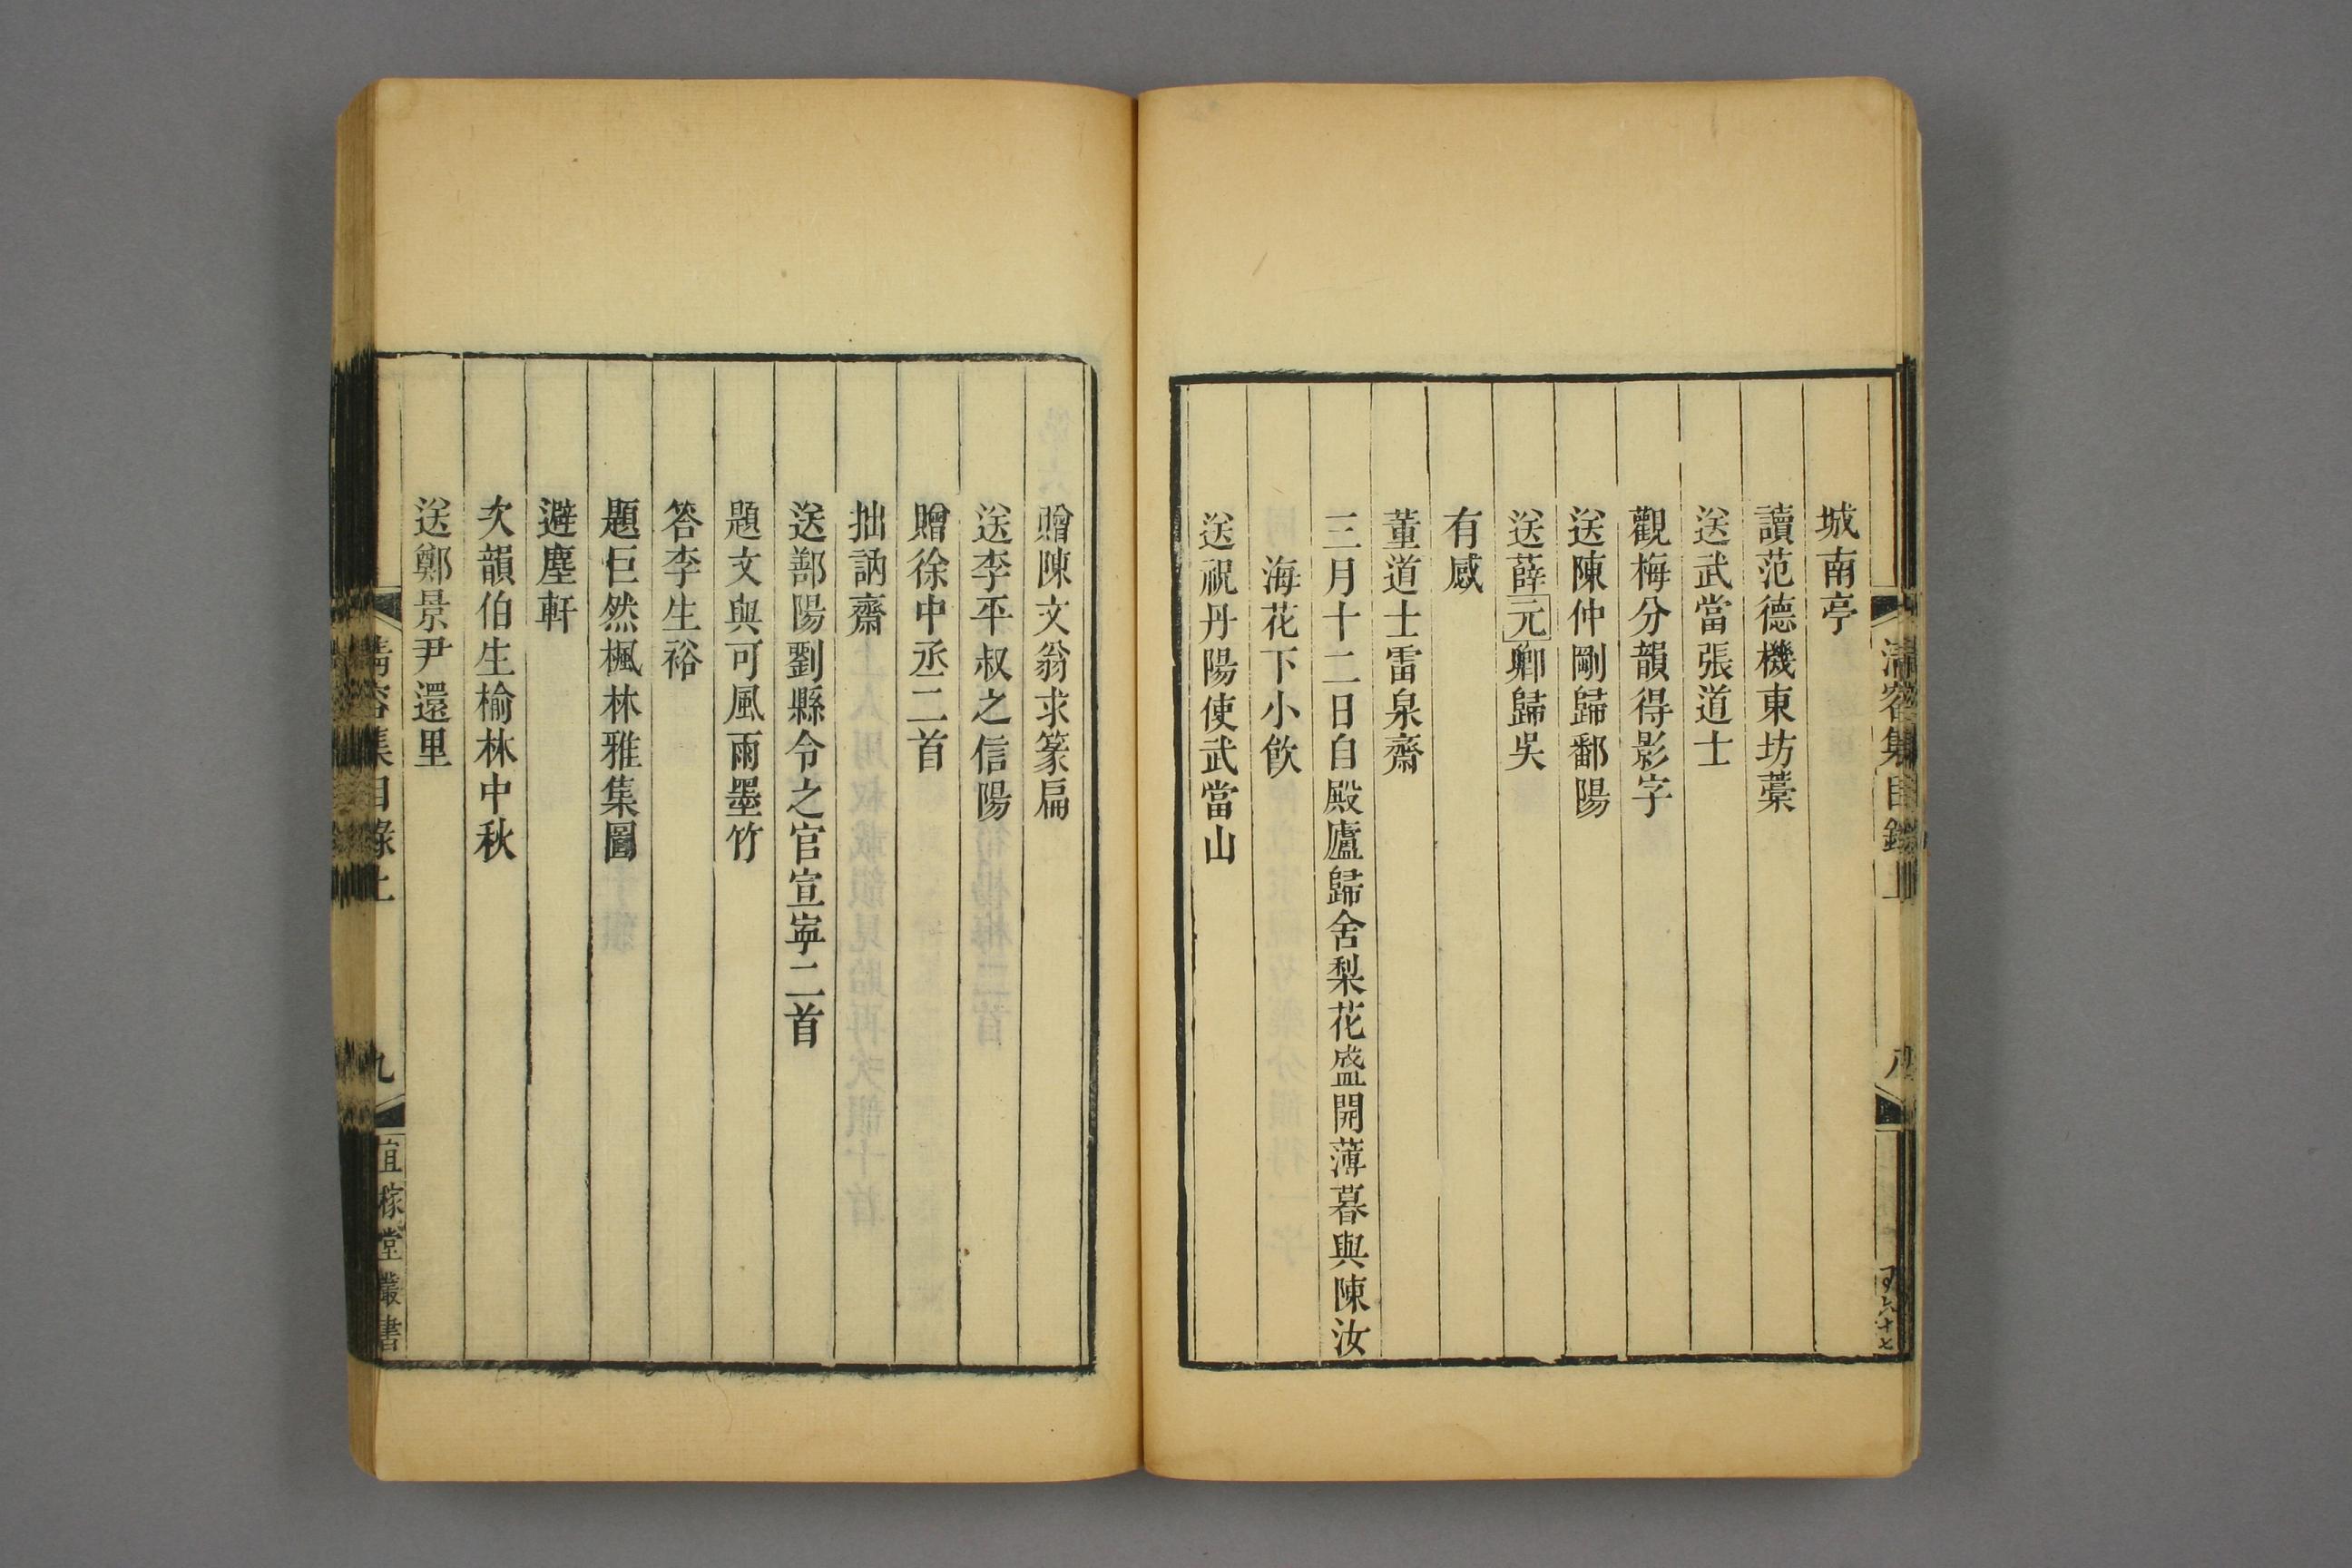 清容集目錄上
八
城南亭
讀范德機東坊藳
送武當張道士
觀梅分韻得影字
送陳仲剛歸鄱陽
送薛元卿歸吳
有感
董道士雷泉齋
三月十二日自殿廬歸舍梨花盛開薄暮與陳汝
海花下小飲
送祝丹陽使武當山
贈陳文翁求篆扁
送李平叔之信陽
贈徐中丞二首
拙訥齋
送鄯陽劉縣令之官宣寧二首
題文與可風雨墨竹
答李生裕
題巨然楓林雅集圖
避塵軒
次韻伯生榆林中秋
送鄭景尹還里
清容集目錄上
九
宜稼堂叢書